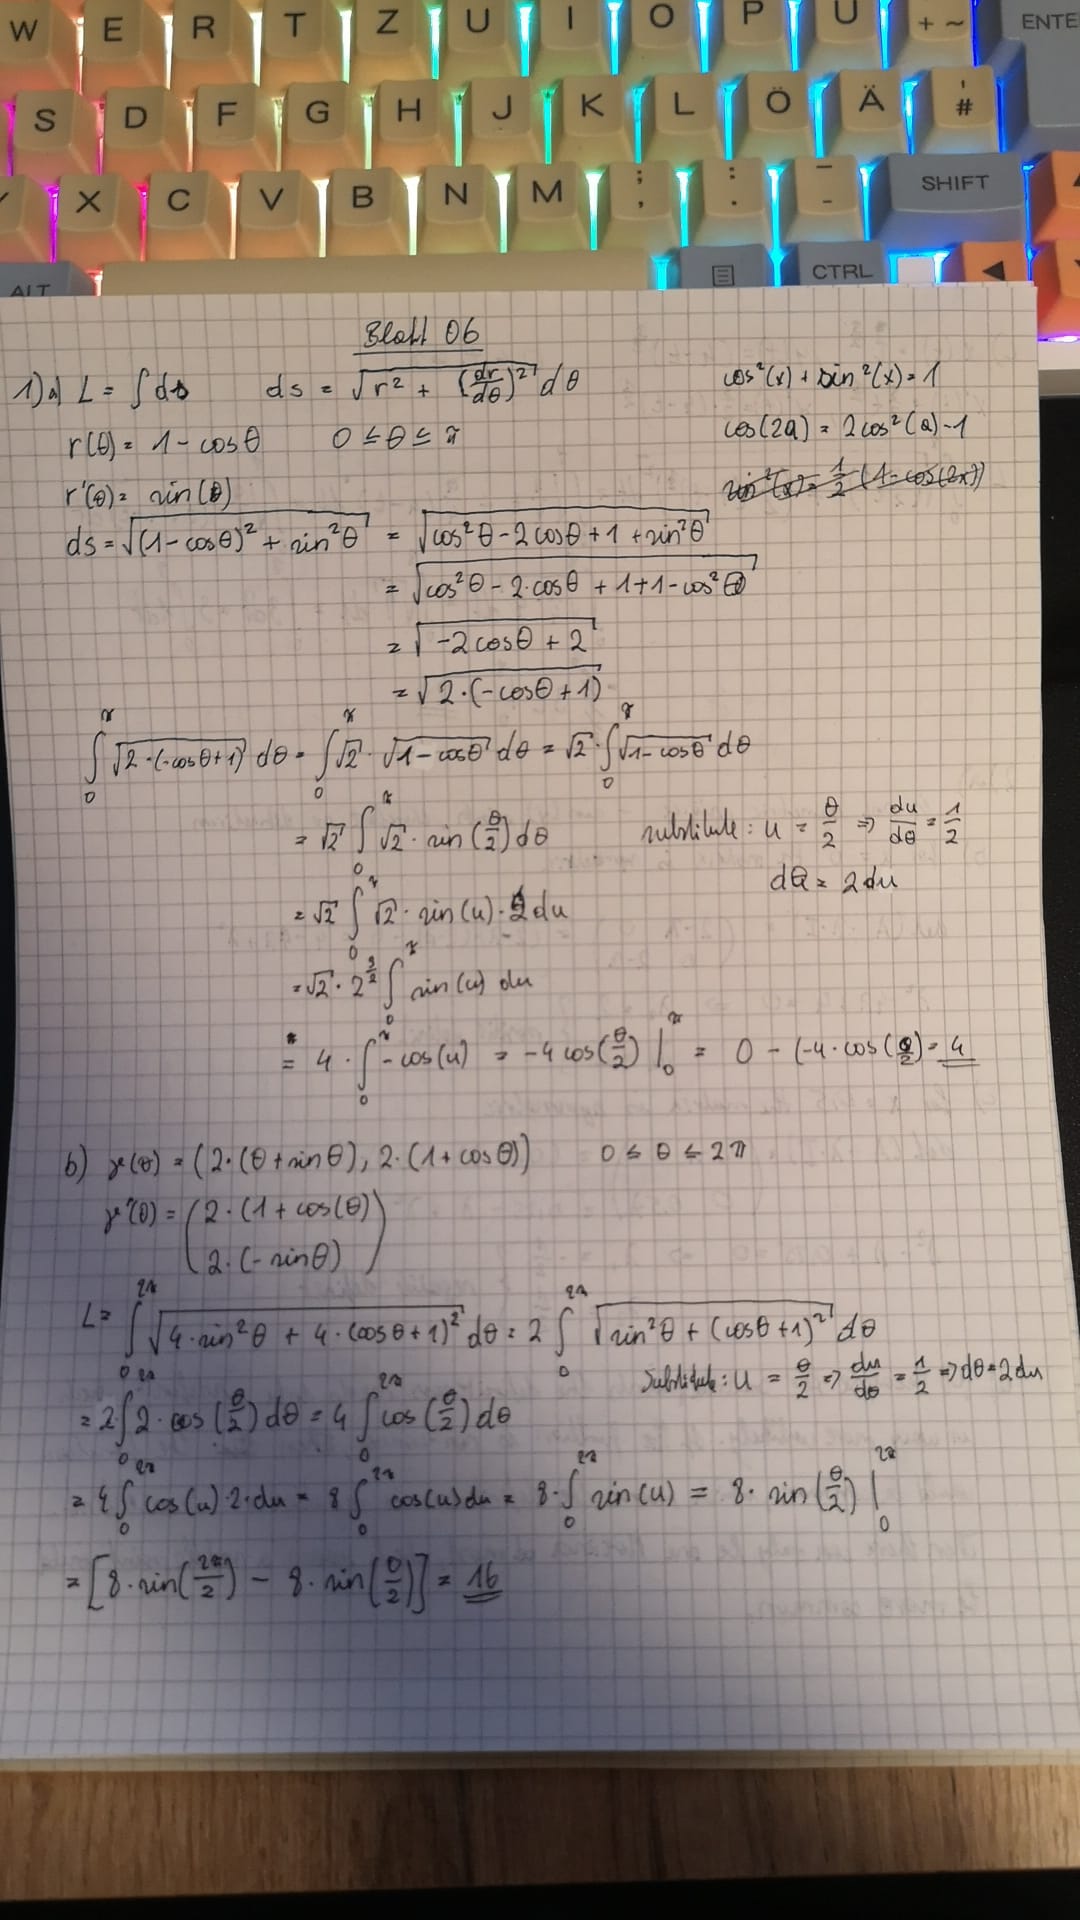 W E R T Z U I O P Ü + ~ ENTE
S D F G H J K L Ö Ä ' #
Y X C V B N M ; , : . _ - SHIFT
ALT CTRL
Blatt 06
1) a) L = ∫ ds ds = √(r² + (dr/dθ)²) dθ cos²(x) + sin²(x) = 1
r(θ) = 1 - cosθ 0 ≤ θ ≤ π cos(2a) = 2cos²(a) - 1
r'(θ) = sin(θ) sin²(x) = 1/2 (1 - cos(2x))
ds = √((1 - cosθ)² + sin²θ) = √(cos²θ - 2cosθ + 1 + sin²θ)
= √(cos²θ - 2·cosθ + 1 + 1 - cos²θ)
= √(-2cosθ + 2)
= √(2·(-cosθ + 1))
∫₀^π √(2·(-cosθ+1)) dθ = ∫₀^π √2 · √(1-cosθ) dθ = √2 · ∫₀^π √(1-cosθ) dθ
= √2 ∫₀^π √2 · sin(θ/2) dθ substitute: u = θ/2 ⇒ du/dθ = 1/2
dθ = 2du
= √2 ∫₀^π √2 · sin(u) · 2 du
= √2 · 2^(3/2) ∫₀^π sin(u) du
= 4 · ∫₀^π -cos(u) = -4 cos(θ/2) |₀^π = 0 - (-4·cos(0/2) = 4
b) γ(θ) = (2·(θ + sinθ), 2·(1 + cosθ)) 0 ≤ θ ≤ 2π
γ'(θ) = (2·(1 + cos(θ)
2·(-sinθ))
L = ∫₀^2π √(4·sin²θ + 4·(cosθ + 1)²) dθ = 2 ∫₀^2π √(sin²θ + (cosθ + 1)²) dθ
Substitute: u = θ/2 ⇒ du/dθ = 1/2 ⇒ dθ = 2du
= 2 ∫₀^2π 2·cos(θ/2) dθ = 4 ∫₀^2π cos(θ/2) dθ
= 4 ∫₀^2π cos(u)·2·du = 8 ∫₀^2π cos(u) du = 8·∫₀^2π sin(u) = 8·sin(θ/2) |₀^2π
= [8·sin(2π/2) - 8·sin(0/2)] = 16